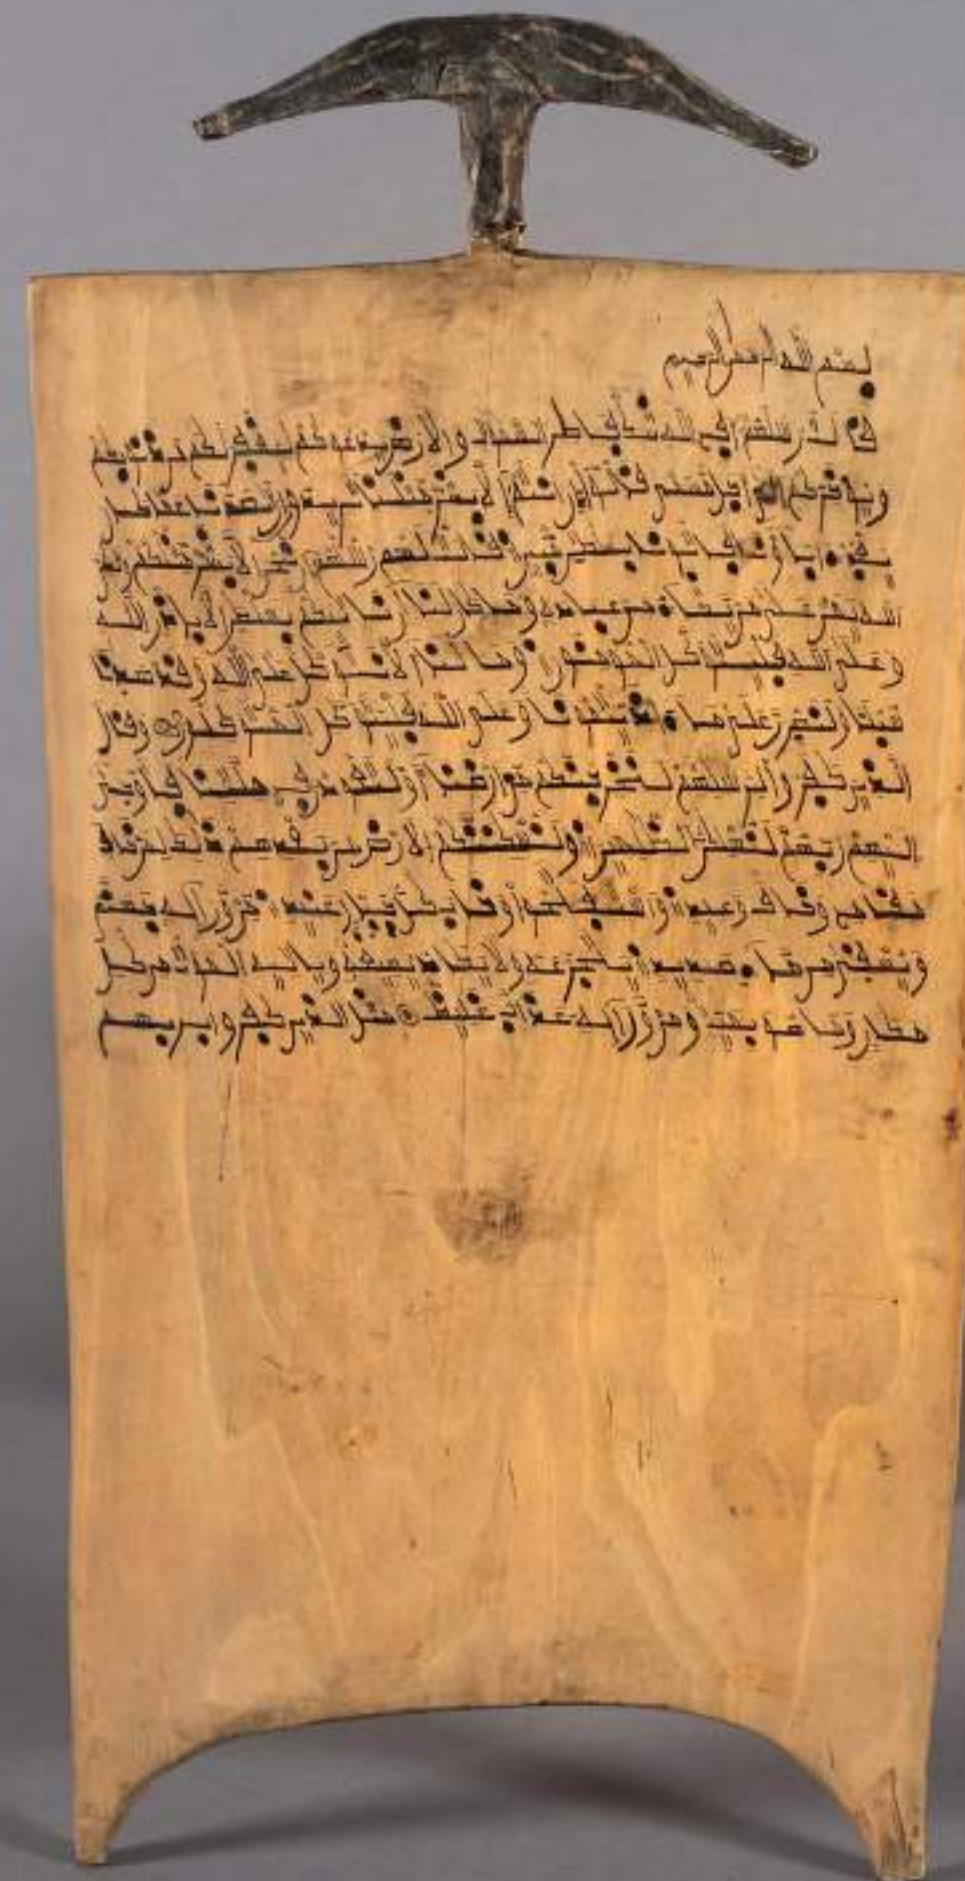 بسم الله الرحمن الرحيم
قالت رسلهم افي الله شك فاطر السموت والارض يدعوكم ليغفر لكم من ذنوبكم
ويؤخركم الى اجل مسمى قالوا ان انتم الا بشر مثلنا تريدون ان تصدونا عما كان
يعبد ءاباؤنا فاتونا بسلطن مبين قالت لهم رسلهم ان نحن الا بشر مثلكم ولكن
الله يمن على من يشاء من عباده وما كان لنا ان ناتيكم بسلطن الا باذن الله
وعلى الله فليتوكل المومنون وما لنا الا نتوكل على الله وقد هدينا
سبلنا ولنصبرن على ما ءاذيتمونا وعلى الله فليتوكل المتوكلون وقال
الذين كفروا لرسلهم لنخرجنكم من ارضنا او لتعودن في ملتنا فاوحى
اليهم ربهم لنهلكن الظلمين ولنسكننكم الارض من بعدهم ذلك لمن خاف
مقامي وخاف وعيد واستفتحوا وخاب كل جبار عنيد من ورائه جهنم
ويسقى من ماء صديد يتجرعه ولا يكاد يسيغه وياتيه الموت من كل
مكان وما هو بميت ومن ورائه عذاب غليظ مثل الذين كفروا بربهم